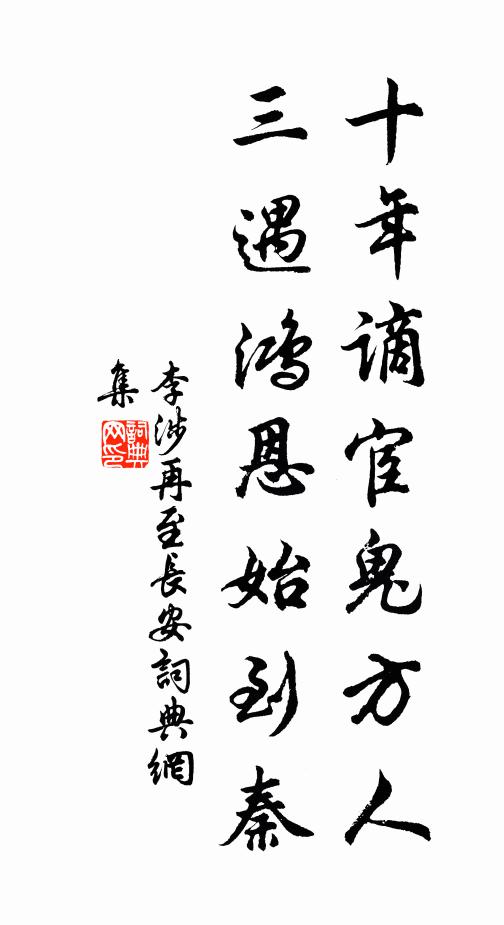 十年謫宦鬼方人
三遇鴻恩始到秦
李涉再至長安詞典網
集
詞典
网印